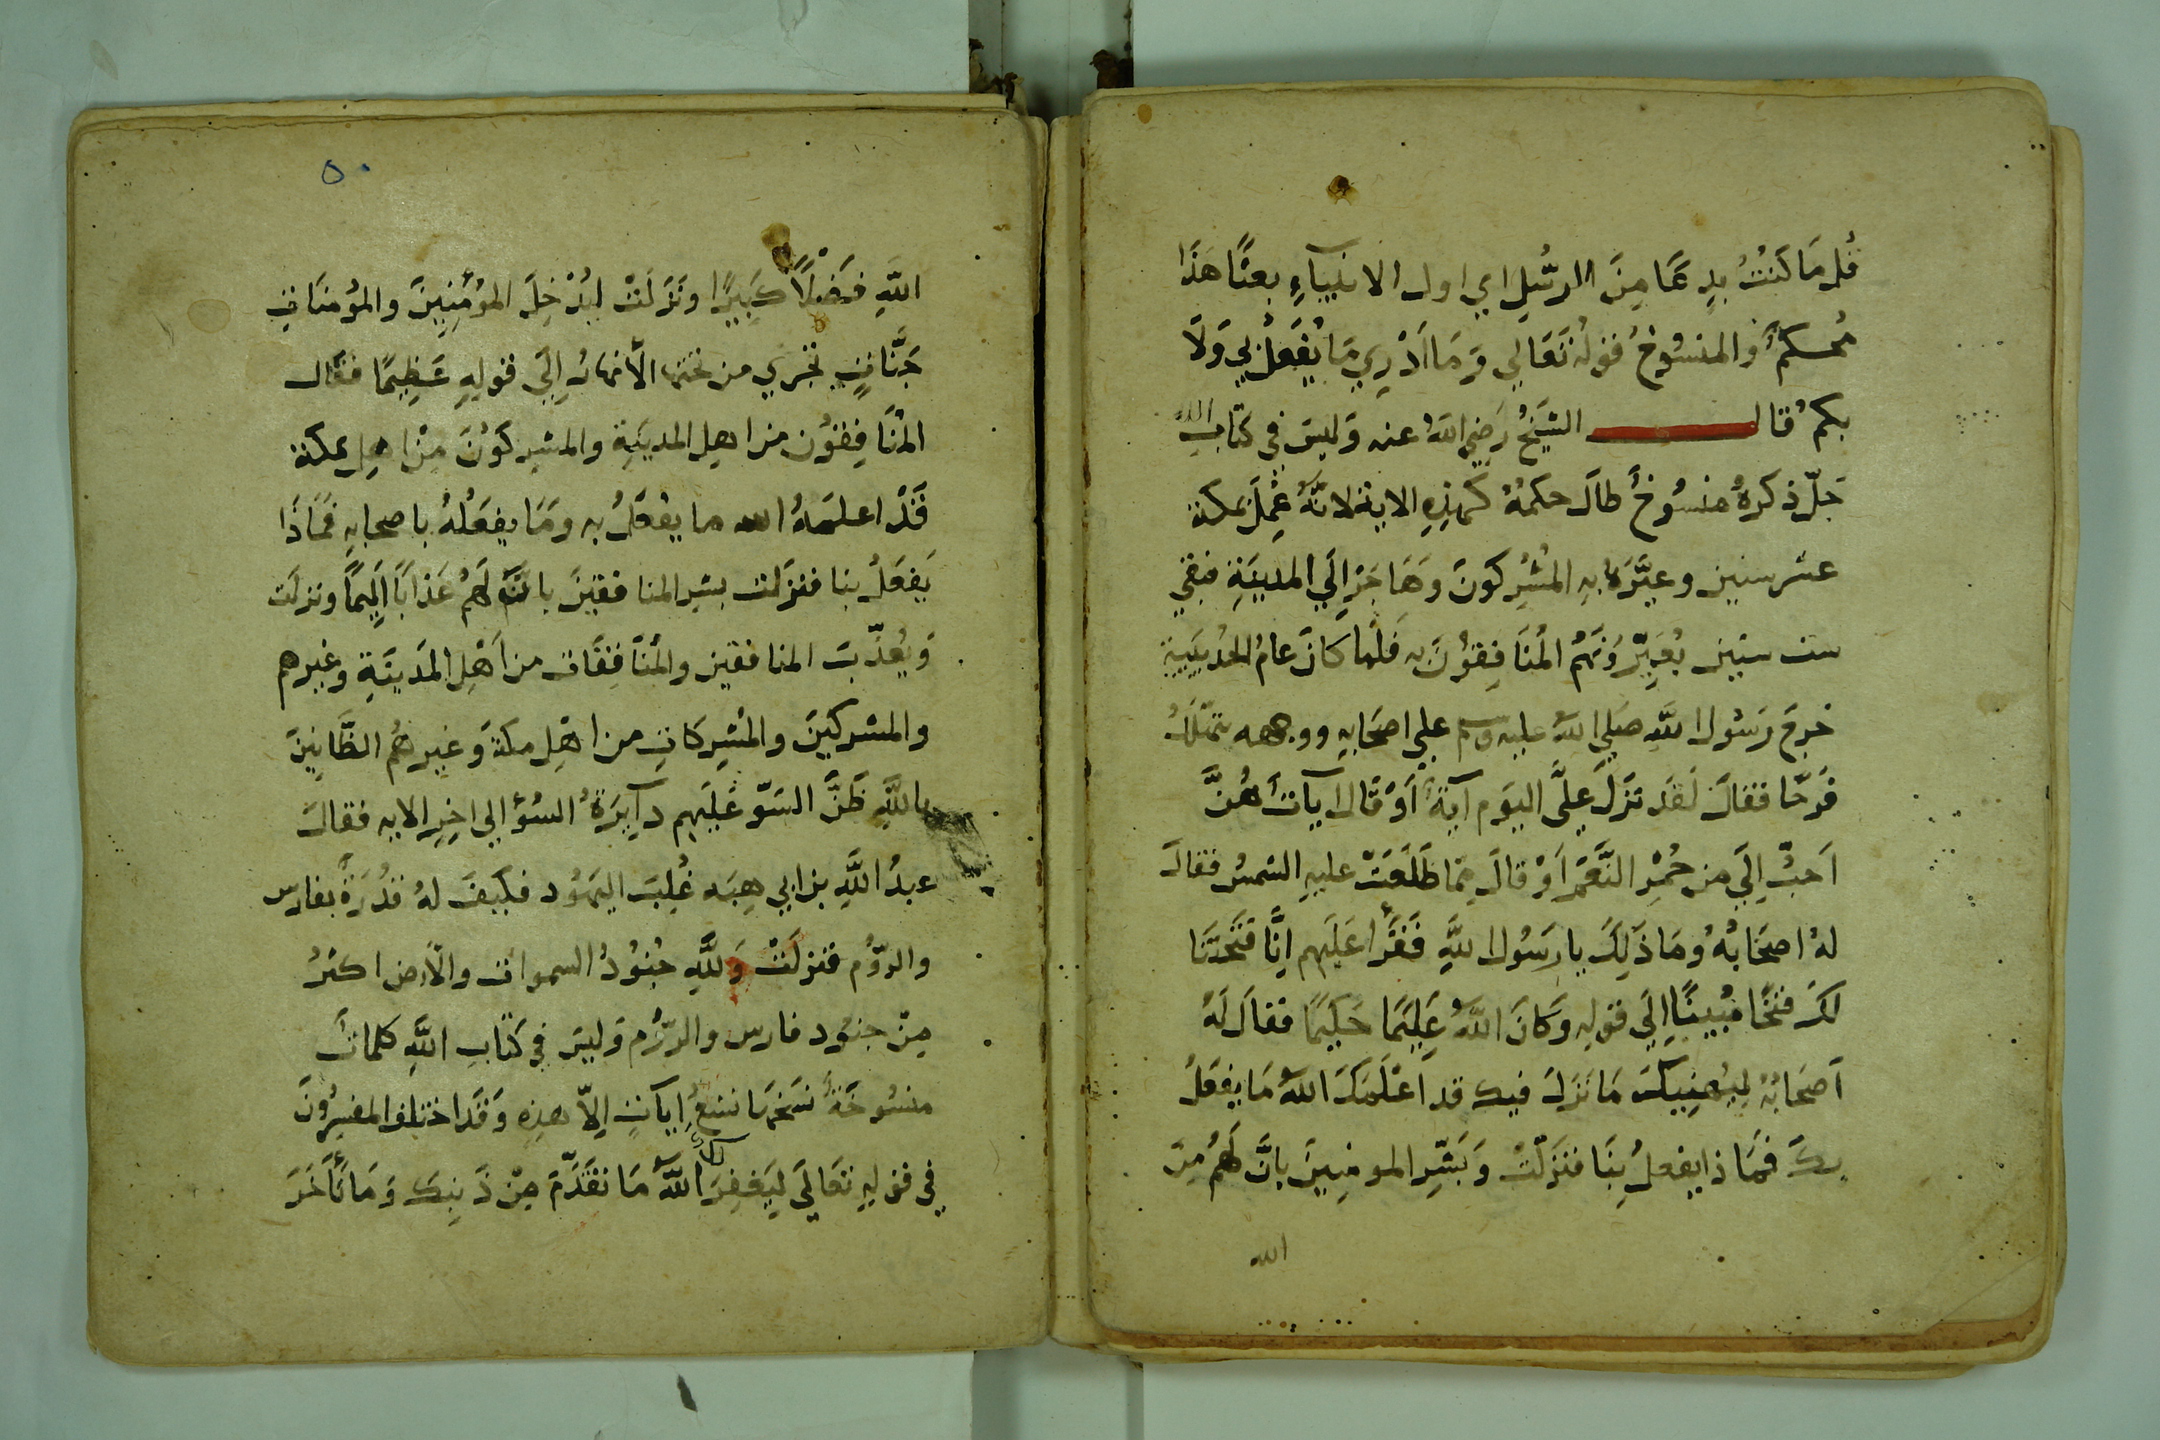 قُل مَا كَنتُ بِدعًا مِنَ الرسُلِ اي اول الانبيآءِ بعثًا هَذَا
مُحكمٌ والمنسُوخُ قولُه تَعَالي وَمَا اَدْرِي مَا يُفعَلُ بي وَلاَ
بكمُ قال الشيَخُ رَضِي اللهُ عنه وَليسَ في كتابِ الله
جَلّ ذكرهُ منسُوخٌ طالَ حكمهُ كَهذِهِ الاية لانَّهُ عُمِلَ بمكة
عشر سنين وعيَّرَهُ بِهِ المُشْرِكونَ وَهَاجَرَ اِلَي المدينَةِ فبقي
ست سنين يُعَيِّرُونَهُمُ المُنَافِقُونَ بِه فَلما كانَ عَامُ الحُديبيةِ
خرجَ رَسُول اللَّهِ صَلي اللهُ عليه وسم علي اصحَابِهِ ووجهه يتهَلَّلُ
فَرحًا فقالَ لَقَد نزَلَ عَلَّي اليوَم آيَةٌ اَوْ قَال آيَاتٌ هُنَّ
اَحَبُّ اِلَي من حُمْرِ النَّعَمِ اَوْ قالَ مِمّا طَلَعَتْ عليهِ الشمسُ فقالَ
لهُ اصحَابُهُ وَمَا ذَلِكَ يا رَسُول اللَّهِ فَقَرَأ عَلَيهِم اِنَّا فتَحنَا
لَكَ فتحًا مُبينًا اِلَي قولِهِ وَكانَ اللهُ عَلِيمًا حَكيمًا فقالَ لَهُ
اَصحَابُهُ لِيُهنِيكَ مَا نَزَلَ فيك قد اَعْلَمَكَ اللهُ مَا يفعَلُ
بِكَ فَمَا ذا يفعلُ بِنَا فنزَلَتْ وَبَشِّرِ المومنِينَ بِانَّ لَهُمْ مِنَ
الله
٥٠
اللَّهِ فَضْلًا كَبِيرًا ونَزَلَتْ لِيُدْخِلَ المُؤْمِنِينَ والمؤمنَاتِ
جَنَّاتٍ تجْرِي من تحتِها الأَنهَارُ اِلَي قولِهِ عَظِيمًا فقَال
المُنَافِقُون من اهل المدينَةِ والمشركُونَ مِنْ اهل مكة
قَدْ اعلمَهُ الله ما يفعَلُ به ومَا يفعَلُهُ باصحابِهِ فمَاذَا
يَفعَلُ بنا فنزَلت بشرِ المنافقِينَ بانَّ لَهُمْ عَذابًا اَلِيمًا ونزلَت
وَيُعَذِّبَ المنافقين والمُنَافِقَات من اَهْلِ المَدِينَةِ وغيرهم
والمشركينَ والمُشركَاتِ من اهْلِ مكةَ وغيرهُم الظَّانِينَ
بِاللَّهِ ظَنَّ السَوّ عَلَيهِم دآيِرَةُ السُوْءِ الي اخِرِ الايه فقالَ
عبدُ اللَّهِ بن ابي هِبَه غُلِبَ اليَهُود فكيفَ لهُ قدُرَةٌ بفارس
والروُّم فنزلَتْ وَللَّهِ جُنُودُ السمواتِ والأَرضِ اكثرُ
مِنْ جنوُد فارس والرّوُم وَليسَ في كتابِ اللَّهِ كلماتٌ
منسُوخَةٌ نسَخهَا تسعُ اِياتٍ اِلاّ هذِهِ وَقَد اختلف المفسِرُونَ
في قولِهِ تَعَالَي لِيَغفِرَ لك اللهُ مَا تقَدَّمَ مِنْ ذَنبِكَ وَمَا تَأَخَرَ